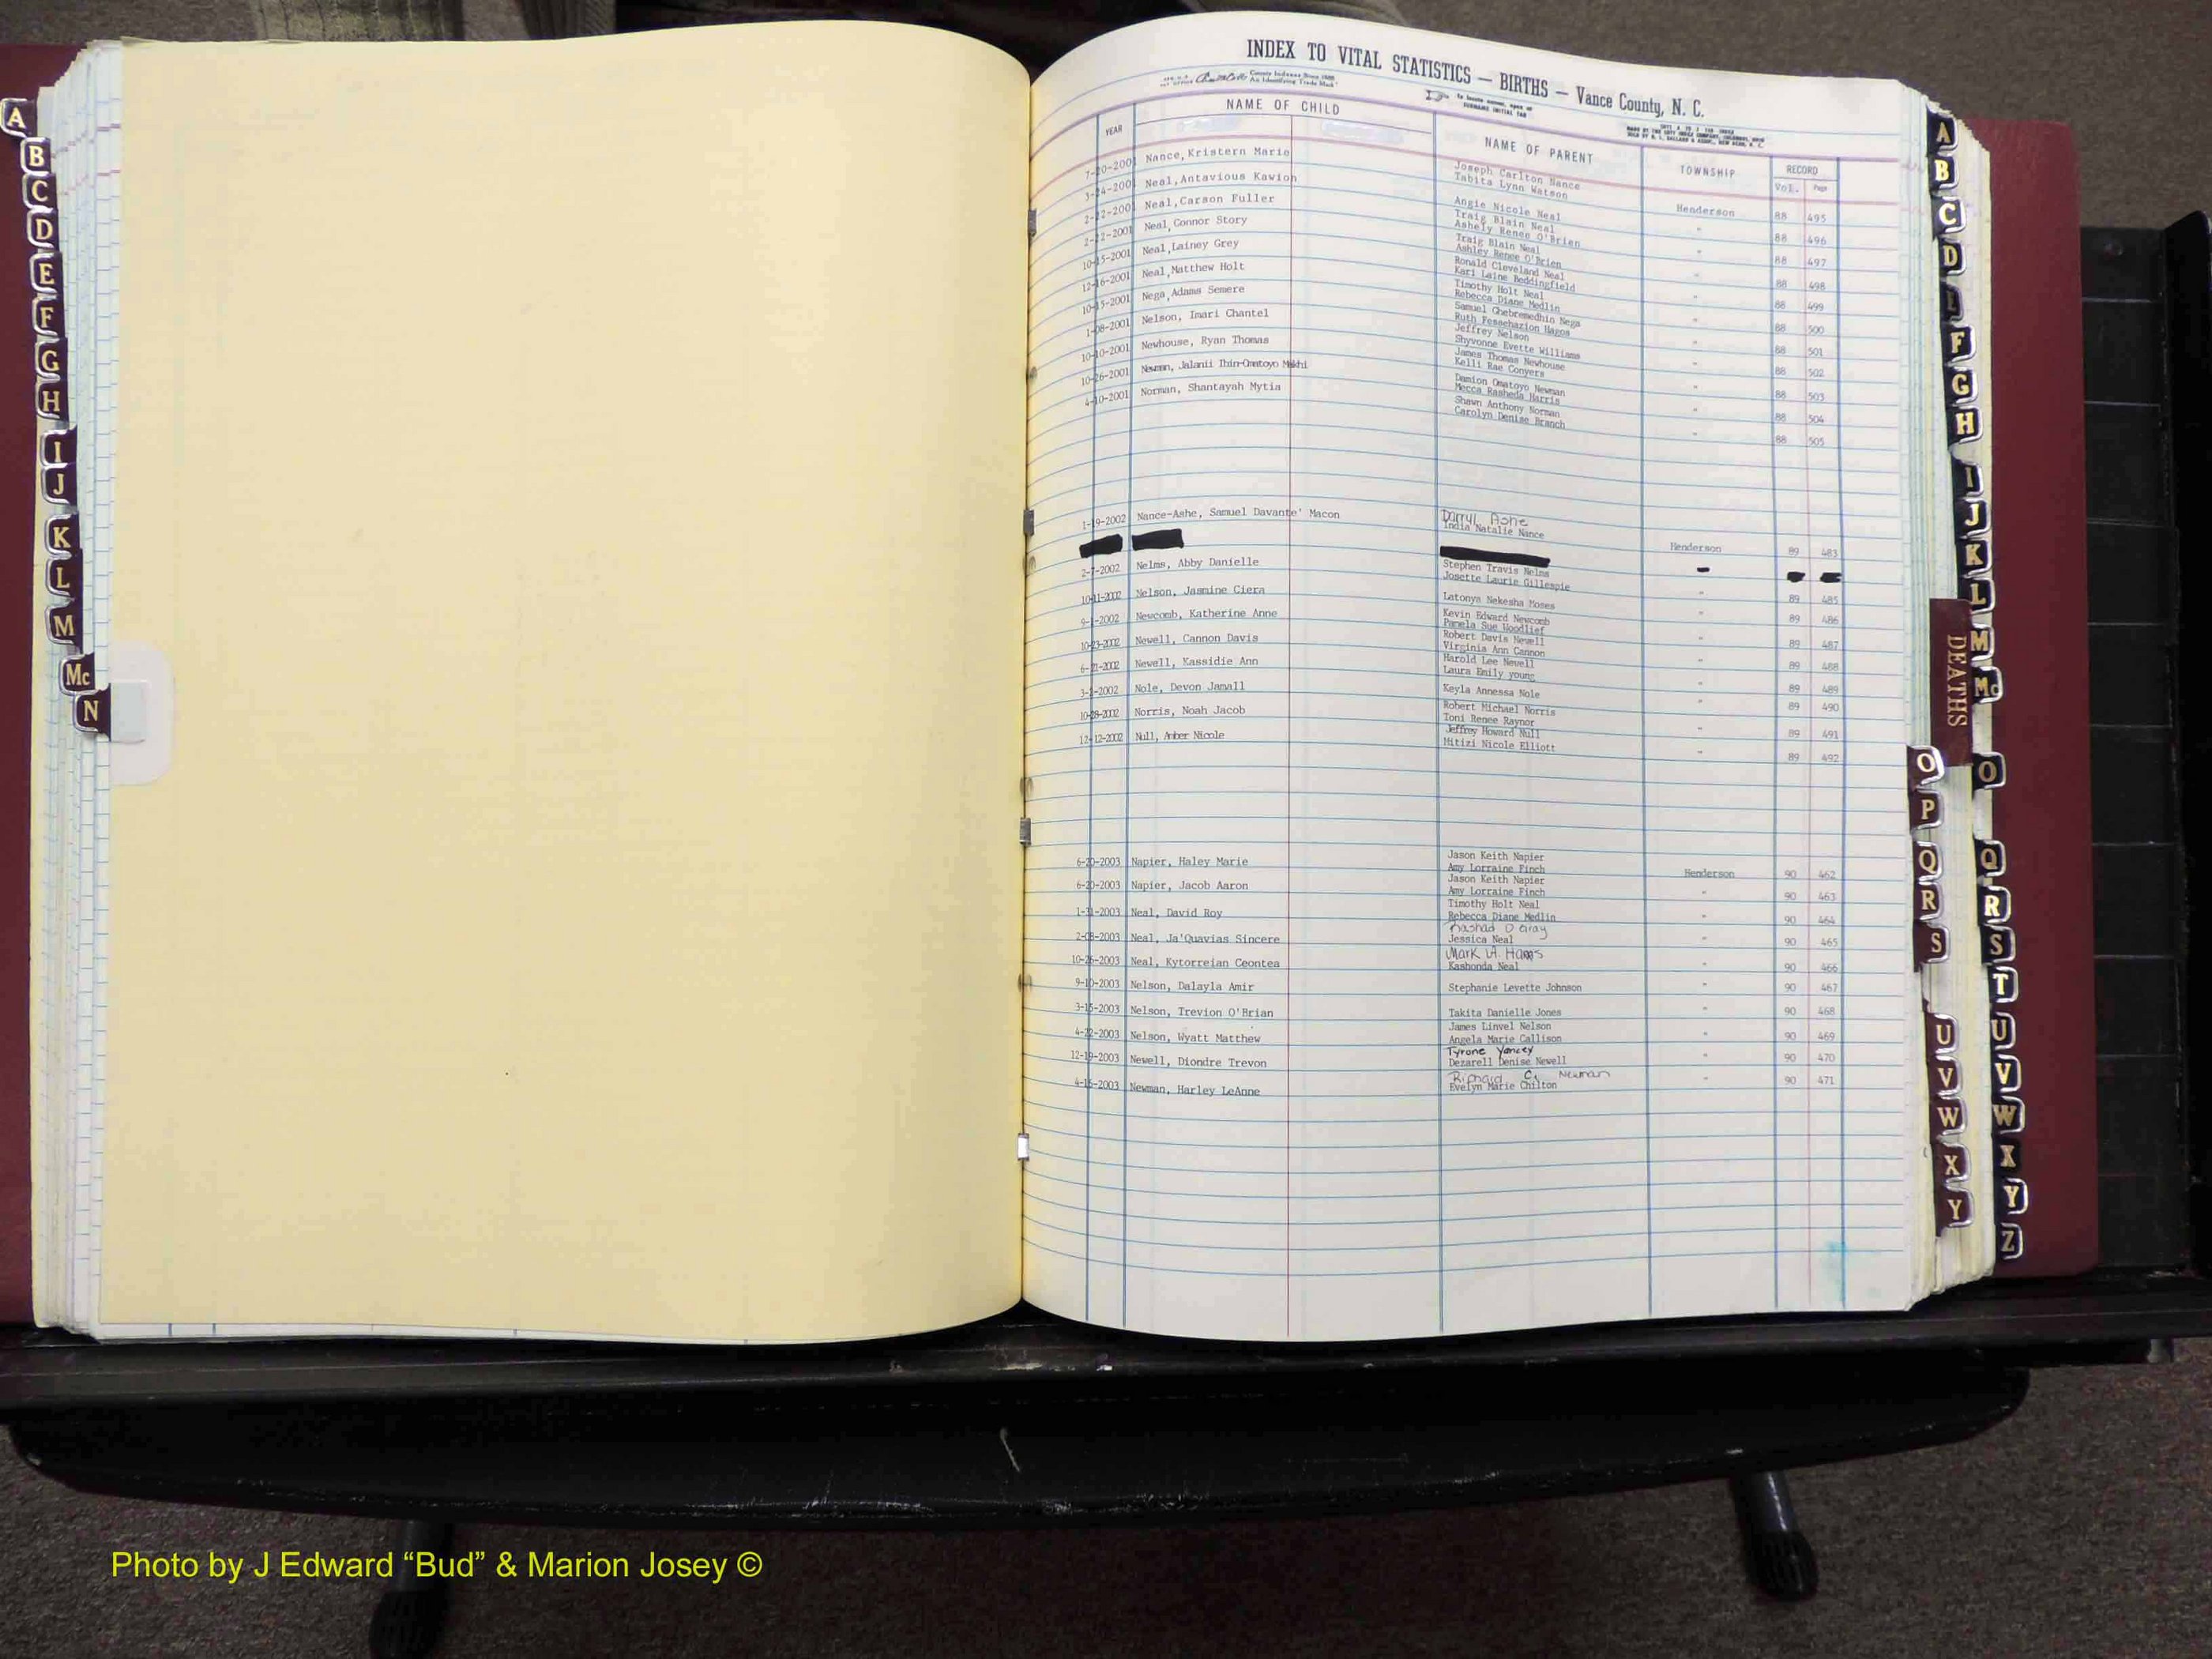 INDEX TO VITAL STATISTICS — BIRTHS — Vance County, N. C.
County Indexes Since 1888
An Identifying Trade Mark
To locate names, open at
SURNAME INITIAL TAB
YEAR NAME OF CHILD NAME OF PARENT TOWNSHIP RECORD
Vol. Page
7-20-2001 Nance, Kristern Marie Joseph Carlton Nance
Tabita Lynn Watson Henderson 88 495
3-24-2001 Neal, Antavious Kawion Angie Nicole Neal " 88 496
2-22-2001 Neal, Carson Fuller Traig Blain Neal
Ashely Renee O'Brien " 88 497
2-22-2001 Neal, Connor Story Traig Blain Neal
Ashley Renee O'Brien " 88 498
10-15-2001 Neal, Lainey Grey Ronald Cleveland Neal
Kari Laine Beddingfield " 88 499
12-16-2001 Neal, Matthew Holt Timothy Holt Neal
Rebecca Diane Medlin " 88 500
10-15-2001 Nega, Adams Semere Samuel Ghebremedhin Nega
Ruth Fessehazion Hagos " 88 501
1-08-2001 Nelson, Imari Chantel Jeffrey Nelson
Shyvonne Evette Williams " 88 502
10-10-2001 Newhouse, Ryan Thomas James Thomas Newhouse
Kelli Rae Conyers " 88 503
10-26-2001 Newman, Jalanii Omatoyo Makhi Damion Omatoyo Newman
Mecca Rasheda Harris " 88 504
4-10-2001 Norman, Shantayah Mytia Shawn Anthony Norman
Carolyn Denise Branch " 88 505
1-19-2002 Nance-Ashe, Samuel Davante' Macon Darryl Ashe
India Natalie Nance Henderson 89 483
2-7-2002 Nelms, Abby Danielle Stephen Travis Nelms
Josette Laurie Gillespie " 89 485
10-11-2002 Nelson, Jasmine Ciera Latonya Nekesha Moses " 89 486
9-1-2002 Newcomb, Katherine Anne Kevin Edward Newcomb
Pamela Sue Woodlief " 89 487
10-23-2002 Newell, Cannon Davis Robert Davis Newell
Virginia Ann Cannon " 89 488
6-21-2002 Newell, Kassidie Ann Harold Lee Newell
Laura Emily young " 89 489
3-1-2002 Nole, Devon Jamall Keyla Annessa Nole 89 490
10-28-2002 Norris, Noah Jacob Robert Michael Norris
Toni Renee Raynor " 89 491
12-12-2002 Null, Amber Nicole Jeffrey Howard Null
Mitizi Nicole Elliott " 89 492
6-20-2003 Napier, Haley Marie Jason Keith Napier
Amy Lorraine Finch Henderson 90 462
6-20-2003 Napier, Jacob Aaron Jason Keith Napier
Amy Lorraine Finch " 90 463
1-31-2003 Neal, David Roy Timothy Holt Neal
Rebecca Diane Medlin " 90 464
2-08-2003 Neal, Ja'Quavias Sincere Rashad D Gray
Jessica Neal " 90 465
10-26-2003 Neal, Kytorreian Ceontea Mark A. Harris
Kashonda Neal " 90 466
9-10-2003 Nelson, Dalayla Amir Stephanie Levette Johnson " 90 467
3-16-2003 Nelson, Trevion O'Brian Takita Danielle Jones " 90 468
4-22-2003 Nelson, Wyatt Matthew James Linvel Nelson
Angela Marie Callison " 90 469
12-19-2003 Newell, Diondre Trevon Tyrone Yancey
Dezarell Denise Newell " 90 470
4-16-2003 Newman, Harley LeAnne Richard C. Newman
Evelyn Marie Chilton " 90 471
A
B
C
D
E
F
G
H
I
J
K
L
M
Mc
N
A
B
C
D
E
F
G
H
I
J
K
L
M
Mc
DEATHS
O
Q
R
S
T
U
V
W
X
Y
Z
O
P
Q
R
S
U
V
W
X
Y
Photo by J Edward “Bud” & Marion Josey ©